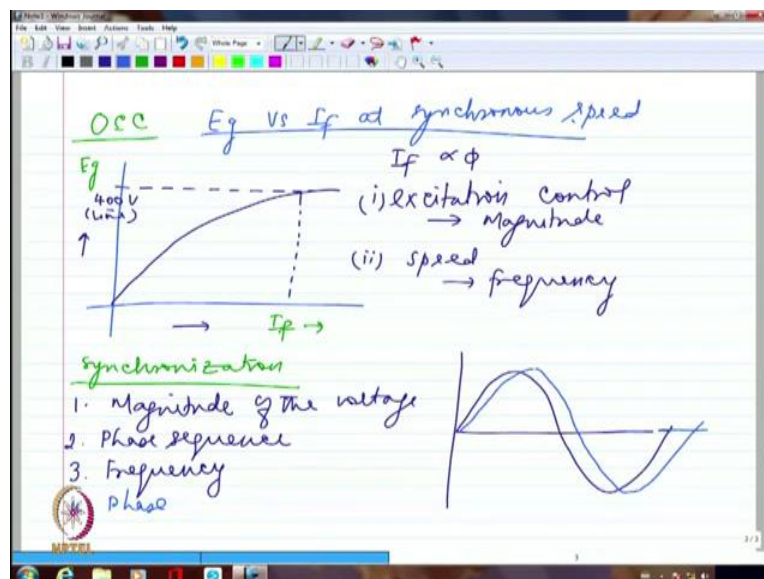 Note3 - Windows Journal
File Edit View Insert Actions Tools Help
Whole Page
OCC Eg vs If at synchronous speed
Eg
400 V
(Line)
↑
→ If →
If ∝ φ
(i) excitation control
→ Magnitude
(ii) speed
→ frequency
Synchronization
1. Magnitude of the voltage
2. Phase sequence
3. Frequency
Phase
NPTEL
3